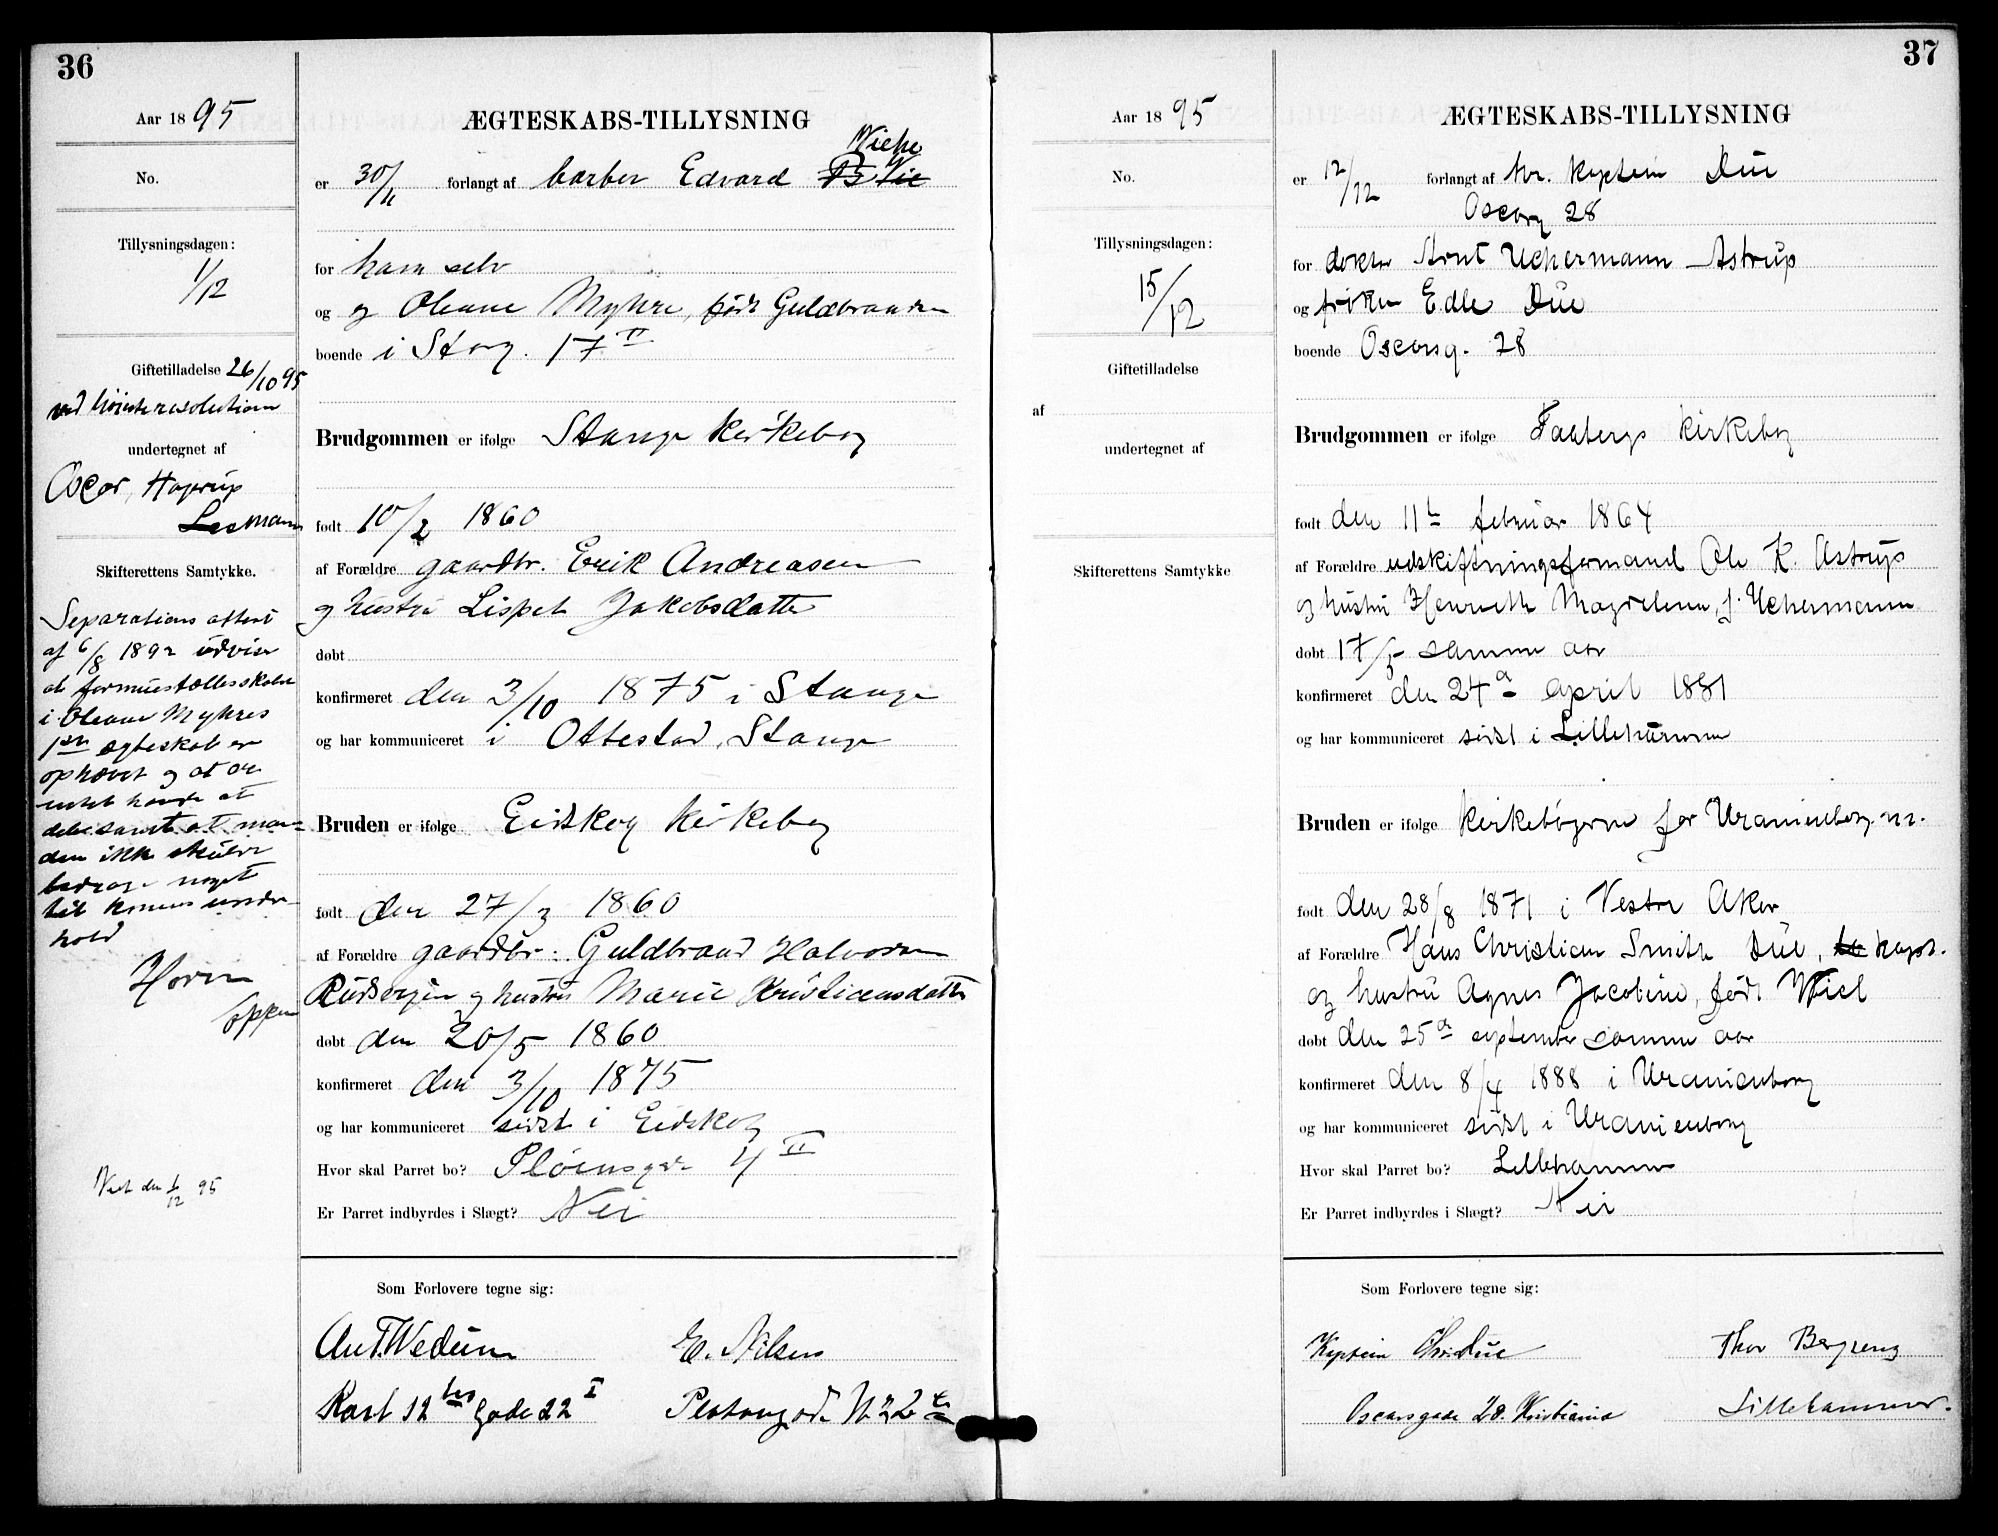 36
Aar 1895
No.
Tillysningsdagen:
1/12
Giftetilladelse 26/10 95
ved høieste resolution
undertegnet af
Oscar, Hagerup
Lehmann
Skifterettens Samtykke.
Separations attest
af 6/8 1892 udviser
at formuesfællesskabet
i Oleane Myhres
1ste ægteskab er
ophævet og at der
intet havde at
dele samt at man-
den ikke skulde
bidrage noget
til konens under-
hold
Horn
Vist den 1/12 95
ÆGTESKABS-TILLYSNING
er 30/11 forlangt af barber Edvard Wiehe
for ham selv
og og Oleane Myhre, født Guldbrandsen
boende i Storg. 17 II
Brudgommen er ifølge Stange kirkebog
født 10/2 1860
af Forældre gaardbr. Erik Andreasen
og hustru Lispet Jakobsdatter
døbt
konfirmeret den 3/10 1875 i Stange
og har kommuniceret i Ottestad, Stange
Bruden er ifølge Eidskog kirkebog
født den 27/3 1860
af Forældre gaardbr. Guldbrand Halvorsen
og hustru Marie Kristiansdatter
døbt den 20/5 1860
konfirmeret den 3/10 1875
og har kommuniceret sidst i Eidskog
Hvor skal Parret bo? Pløensgade 4 II
Er Parret indbyrdes i Slægt? Nei
Som Forlovere tegne sig:
Ant. Wedum E. Nilsen
Karl 12tes gade 22 I
37
Aar 1895
No.
Tillysningsdagen:
15/12
Giftetilladelse
af
undertegnet af
Skifterettens Samtykke
ÆGTESKABS-TILLYSNING
er 12/12 forlangt af hr. kaptein Due
Oscarg 28
for doktor Arnt Uchermann Astrup
og frøken Edle Due
boende Oscarsg. 28
Brudgommen er ifølge Faabergs kirkebog
født den 11te februar 1864
af Forældre udskiftningsformand Ole K. Astrup
og hustru Henriette Magdelena, f. Uchermann
døbt 17/5 samme aar
konfirmeret den 24de april 1881
og har kommuniceret sidst i Lillehammer
Bruden er ifølge kirkebøgerne for Uranienborg m.
født den 28/8 1871 i Vestre Aker
af Forældre Hans Christian Smith Due, kapt.
og hustru Agnes Jacobine, født Wiel
døbt den 25de september samme aar
konfirmeret den 8/4 1888 i Uranienborg
og har kommuniceret sidst i Uranienborg
Hvor skal Parret bo? Lillehammer
Er Parret indbyrdes i Slægt? Nei
Som Forlovere tegne sig:
Kaptein Chr. Due Thor Bergseng
Oscarsgade 28. Kristiania Lillehammer.